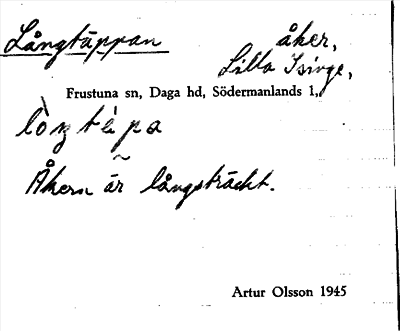 Långtäppan åker,
Lilla Isinge,
Frustuna sn, Daga hd, Södermanlands l.,
Åkern är långsträckt.
Artur Olsson 1945